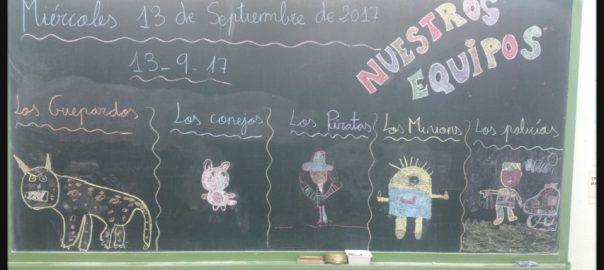 Miércoles 13 de Septiembre de 2017
13-9-17
NUESTROS
EQUIPOS
Los Guepardos
Los conejos
Los Piratas
Los Minions
Los policías